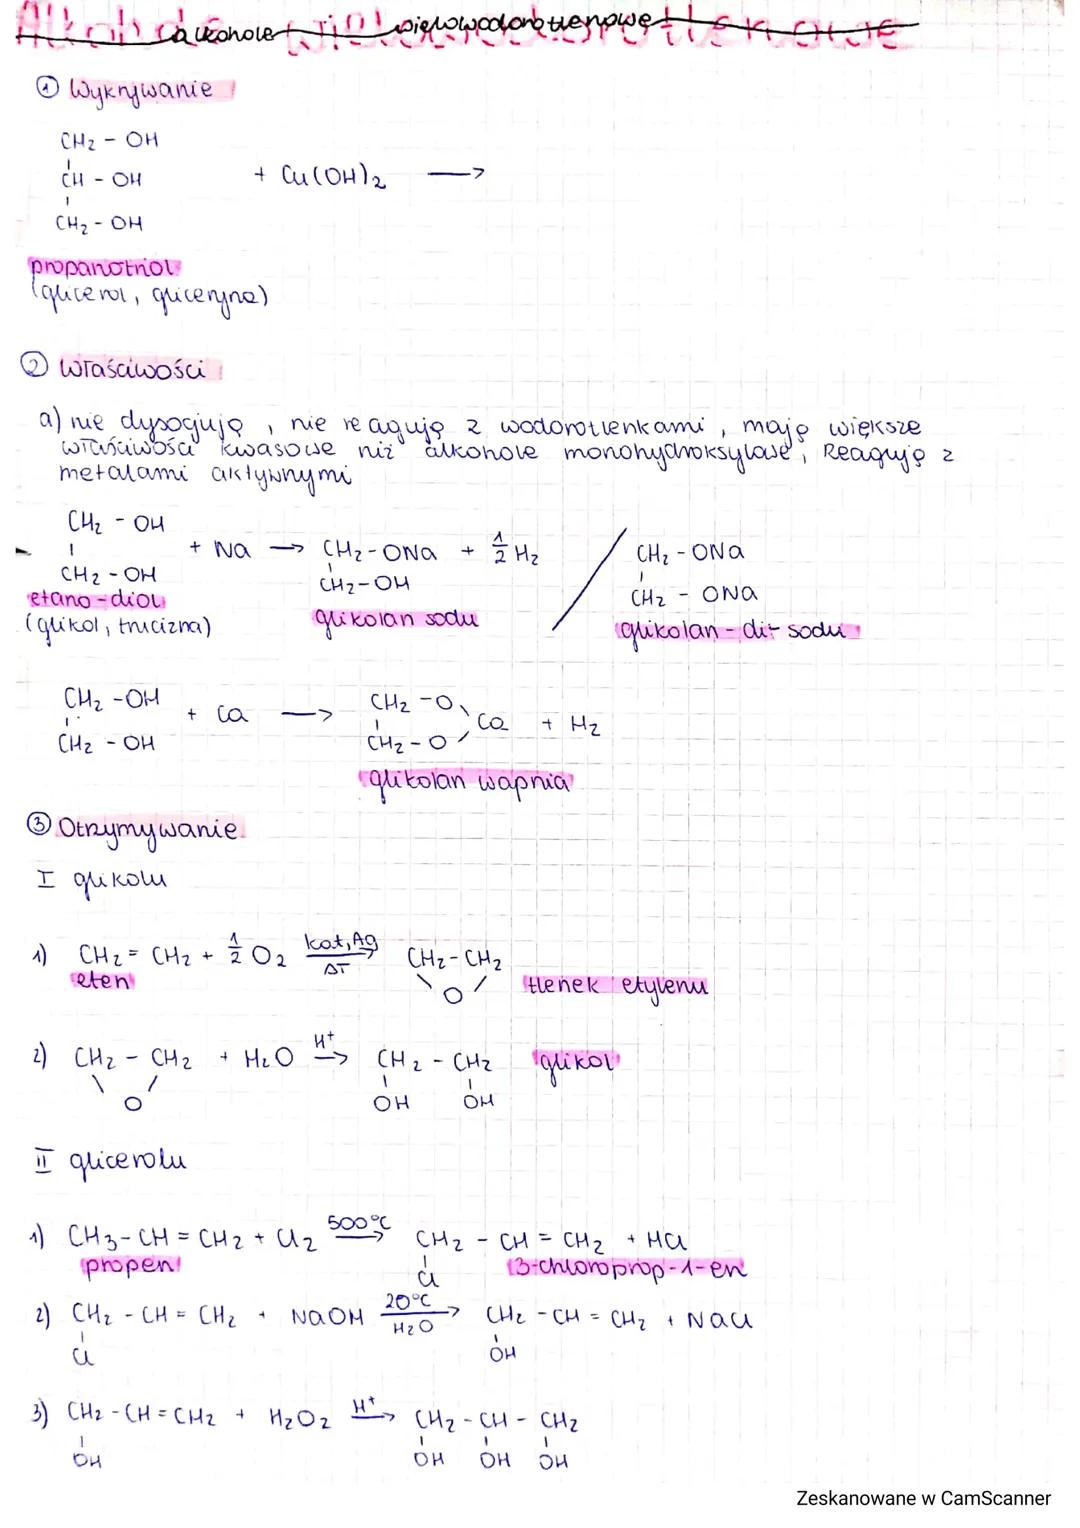 alkohole wielowodorotlenowe
① Wykrywanie
CH₂ - OH
CH - OH + Cu(OH)₂ →
CH₂ - OH
propanotriol
(glicerol, gliceryna)
② Właściwości
a) nie dysocjują, nie reagują z wodorotlenkami, mają większe
właściwości kwasowe niż alkohole monohydroksylowe, Reagują z
metalami aktywnymi
CH₂ - OH
+ Na → CH₂-ONa + ½ H₂ / CH₂ - ONa
CH₂ - OH CH₂-OH CH₂ - ONa
etano-diol glikolan sodu glikolan-di-sodu
(glikol, trucizna)
CH₂ -OH CH₂ -O
+ Ca → Ca + H₂
CH₂ - OH CH₂ - O
glikolan wapnia
③ Otrzymywanie
I glikolu
1) CH₂ = CH₂ + ½ O₂ kat, Ag → ΔT CH₂-CH₂
eten O tlenek etylenu
2) CH₂ - CH₂ + H₂O H⁺ → CH₂ - CH₂ glikol
O OH OH
II glicerolu
1) CH₃-CH = CH₂ + Cl₂ 500°C → CH₂ - CH = CH₂ + HCl
propen Cl 3-chloroprop-1-en
2) CH₂ - CH = CH₂ + NaOH 20°C → H₂O CH₂ -CH = CH₂ + NaCl
Cl OH
3) CH₂ -CH=CH₂ + H₂O₂ H⁺ → CH₂ - CH - CH₂
OH OH OH OH
Zeskanowane w CamScanner